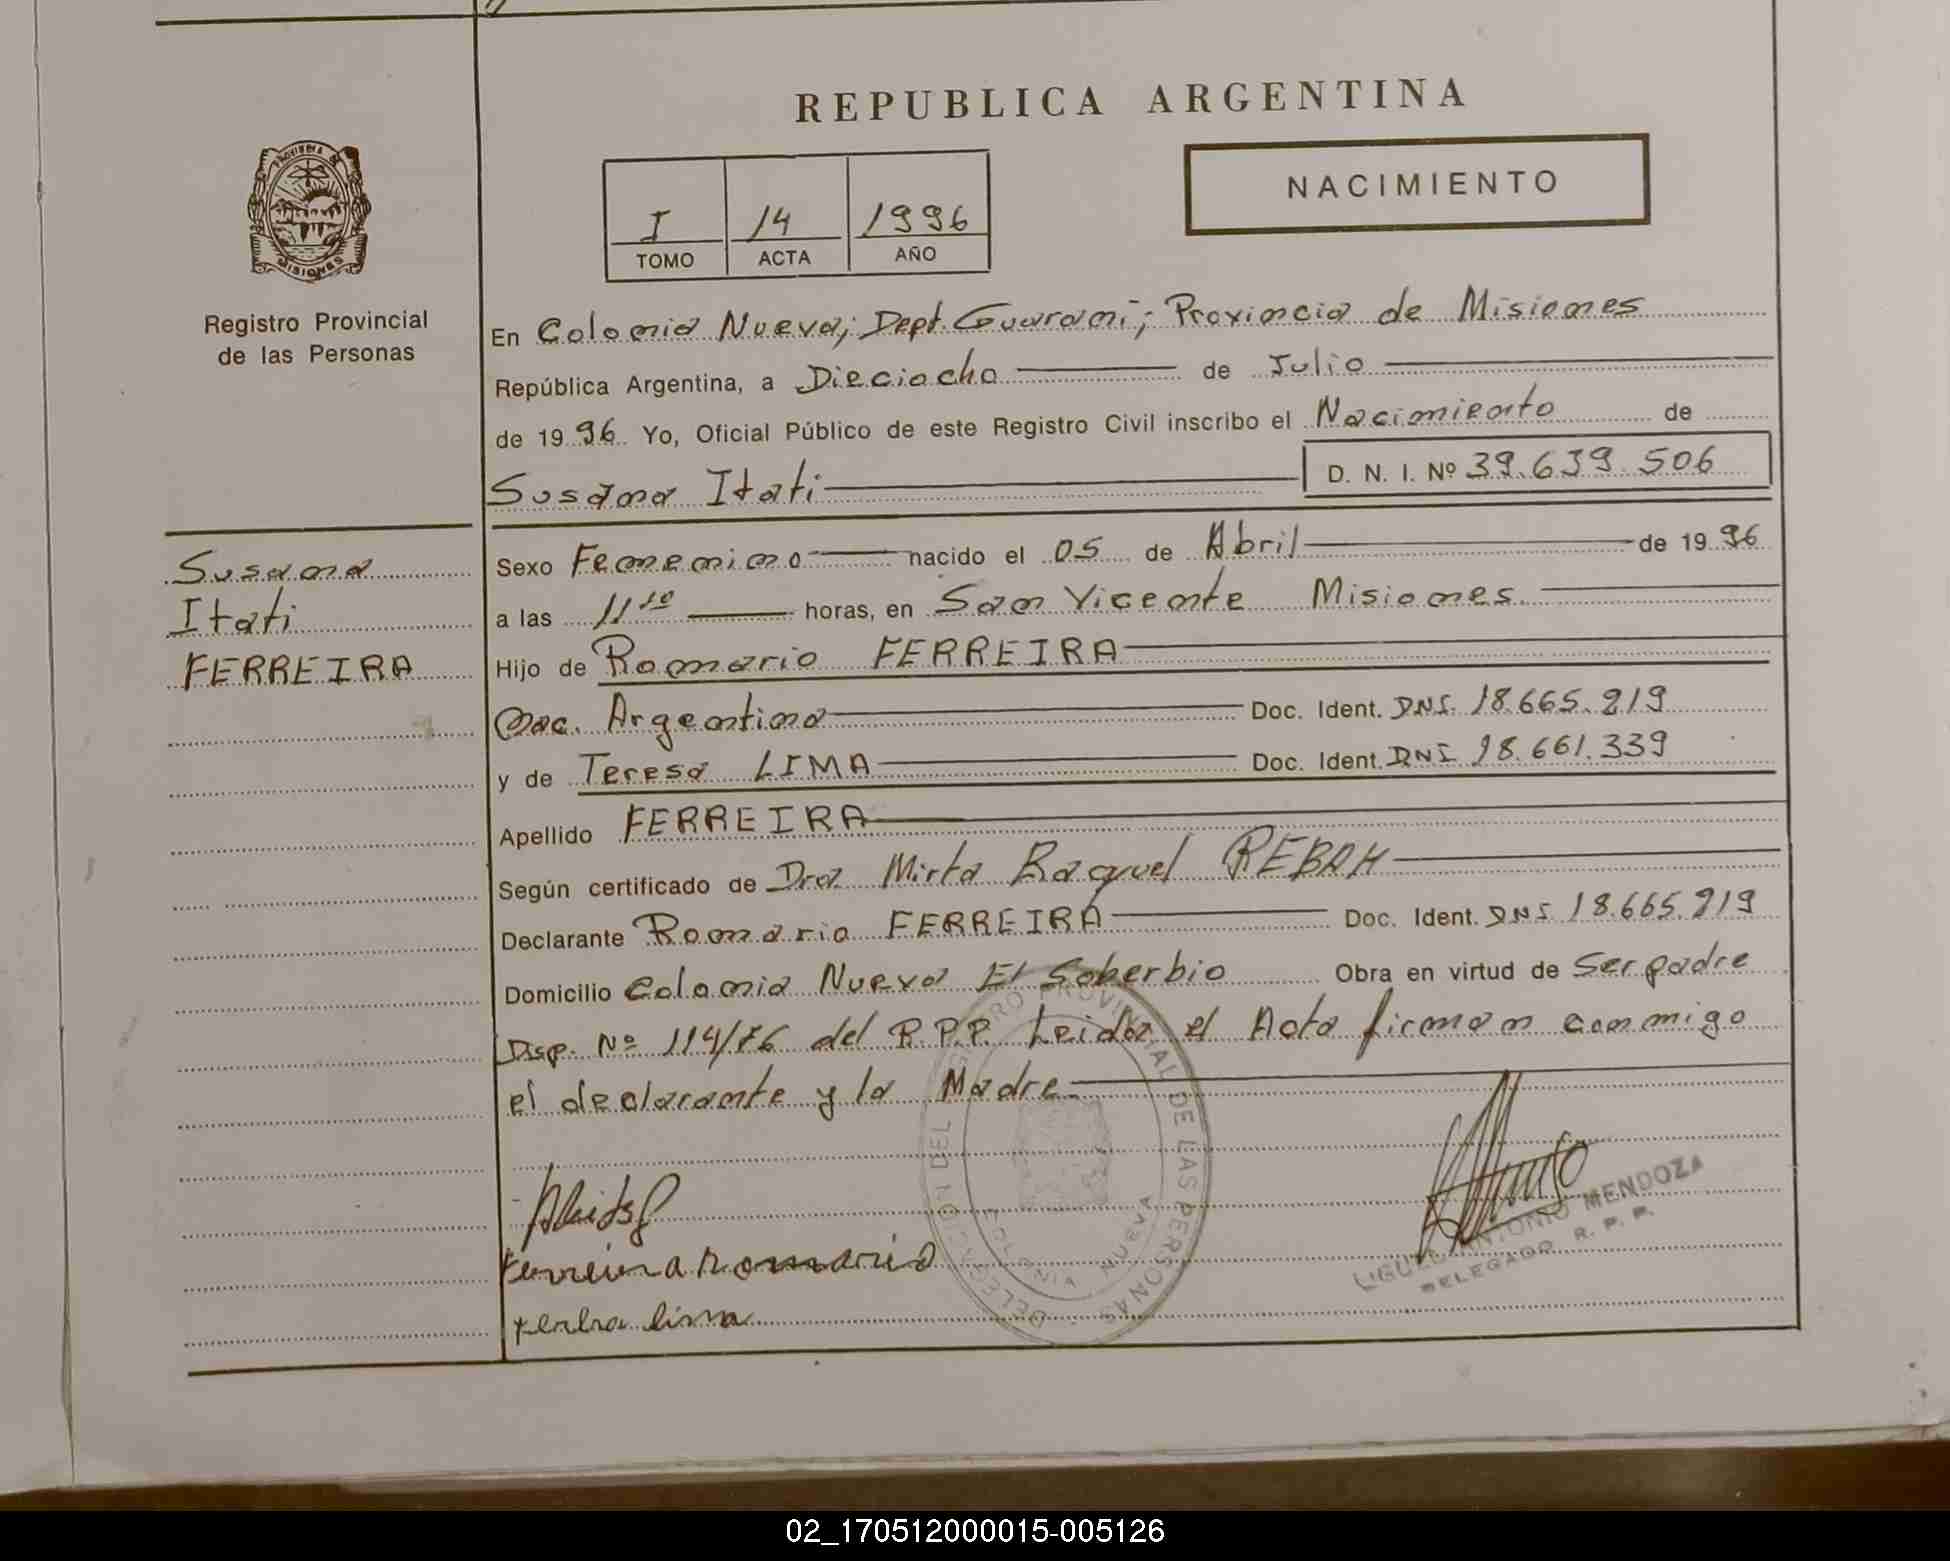 REPUBLICA ARGENTINA
PROVINCIA DE
MISIONES
NACIMIENTO
I 14 1996
TOMO ACTA AÑO
Registro Provincial
de las Personas
En Colonia Nueva; Dept. Guarani; Provincia de Misiones
República Argentina, a Dieciocho de Julio
de 1996 Yo, Oficial Público de este Registro Civil inscribo el Nacimiento de
Susana Itati D. N. I. Nº 39.639.506
Susana
Itati
FERREIRA
Sexo Femenino nacido el 05 de Abril de 1996
a las 11 10 horas, en San Vicente Misiones.
Hijo de Romario FERREIRA
Nac. Argentina Doc. Ident. DNI. 18.665.219
y de Teresa LIMA Doc. Ident. DNI 18.661.339
Apellido FERREIRA
Según certificado de Dra Mirta Raquel REBAK
Declarante Romario FERREIRA Doc. Ident. DNI 18.665.219
Domicilio Colonia Nueva El Soberbio Obra en virtud de Ser padre
Disp. Nº 114/76 del R.P.P. Leida el Acta firman conmigo
el declarante y la Madre
DELEGACION DEL REGISTRO PROVINCIAL DE LAS PERSONAS
COLONIA NUEVA
Ferreira Romario
lima
ANTONIO MENDOZA
DELEGADO R. P. P.
02_170512000015-005126